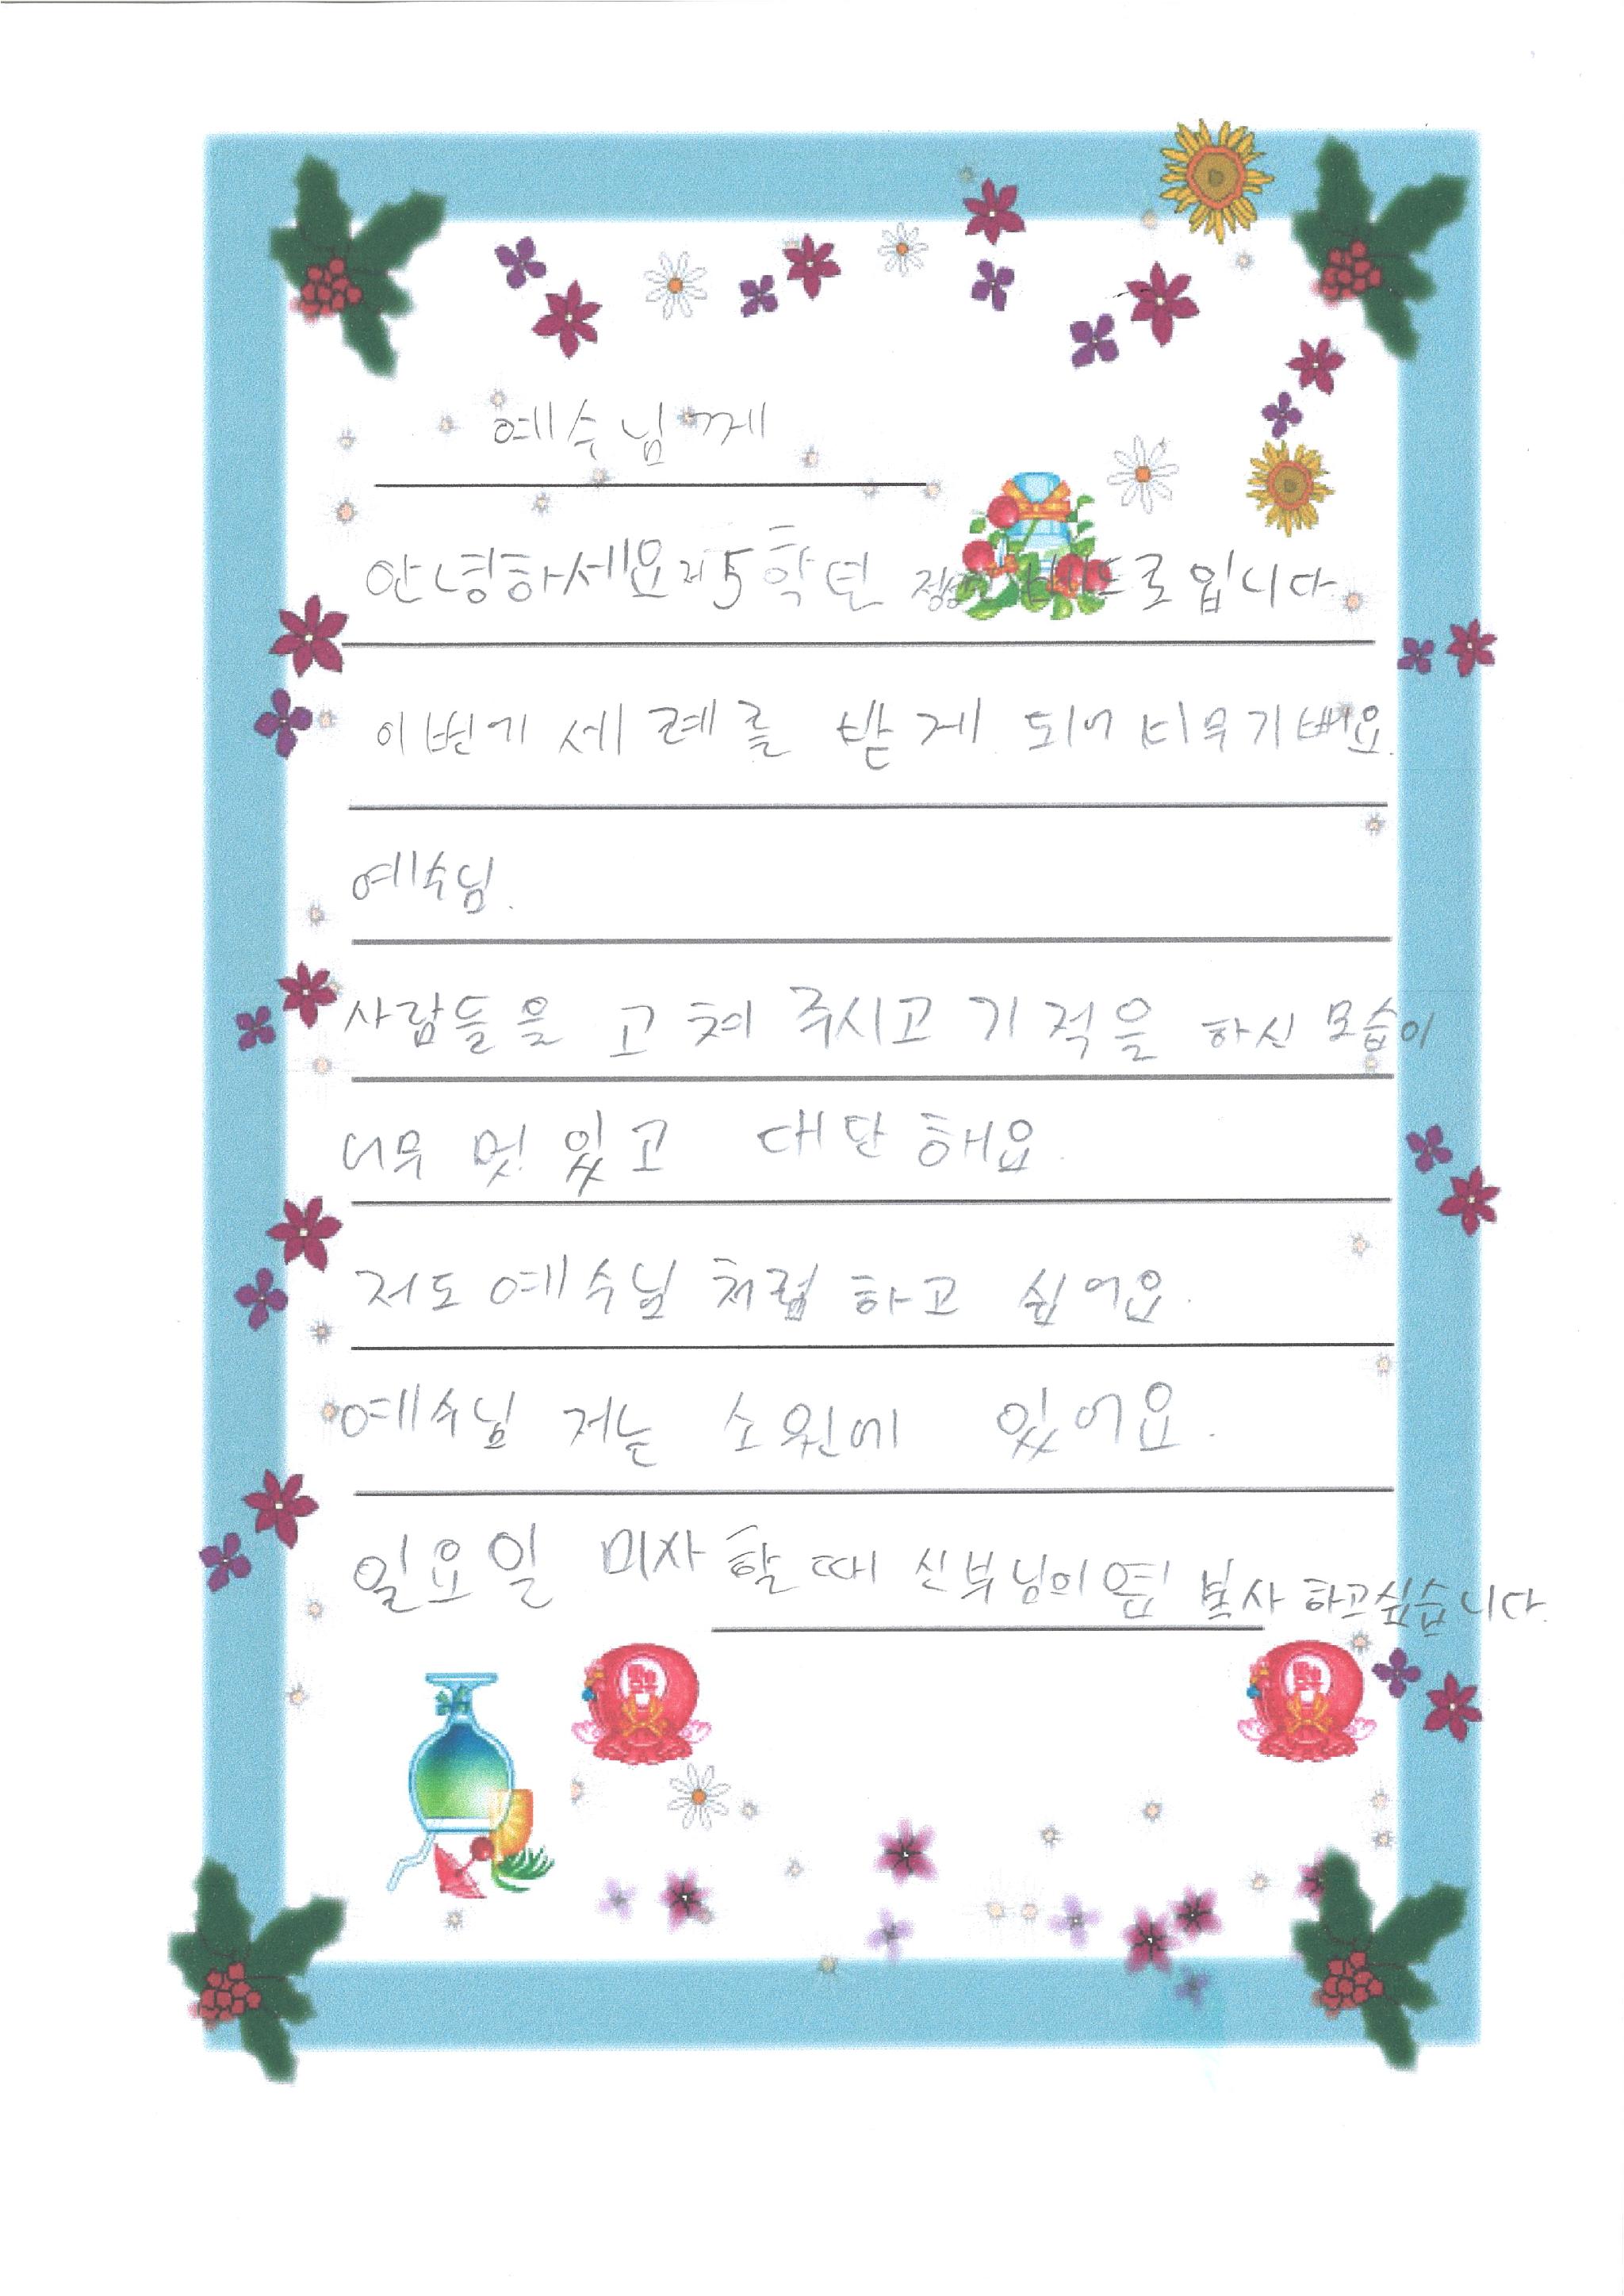 예수님께
안녕하세요 저 5학년 입니다.
이번기 세례를 받게 되어 너무 기뻐요.
예수님.
사람들을 고쳐 주시고 기적을 하신 모습이
너무 멋 있고 대단해요.
저도 예수님 처럼 하고 싶어요.
예수님 저는 소원에 있어요.
일요일 미사 할 때 신부님의 옆 복사 하고싶습니다.